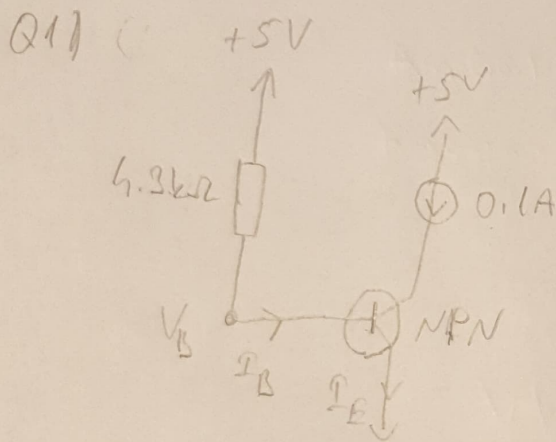 Q1)
+5V
+5V
4.3kΩ
0.1A
V_B
NPN
I_B
I_E